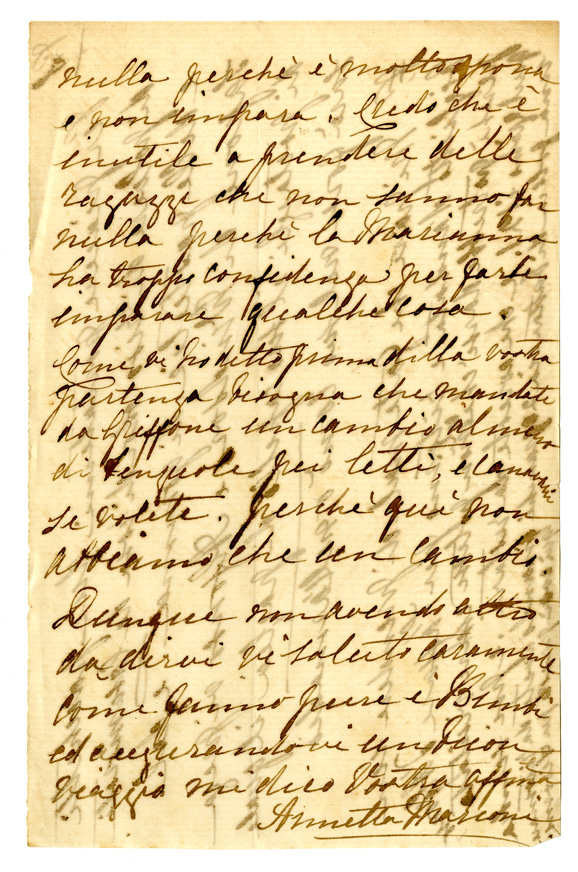 nulla perchè è molto
e non impara. Credo che è
inutile a prendere delle
ragazze che non sanno far
nulla perchè la Marianna
ha troppo confidenza per farle
imparare qualche cosa.
Come vi ho detto prima della vostra
partenza bisogna che mandate
da un cambio almeno
di lenzuola pei letti, e
se volete. Perchè quì non
abbiamo che un cambio.
Dunque non avendo altro
da dirvi vi saluto caramente
come fanno pure i Bimbi
ed augurandovi un buon
viaggio mi dico Vostra affma
Annetta Marioni